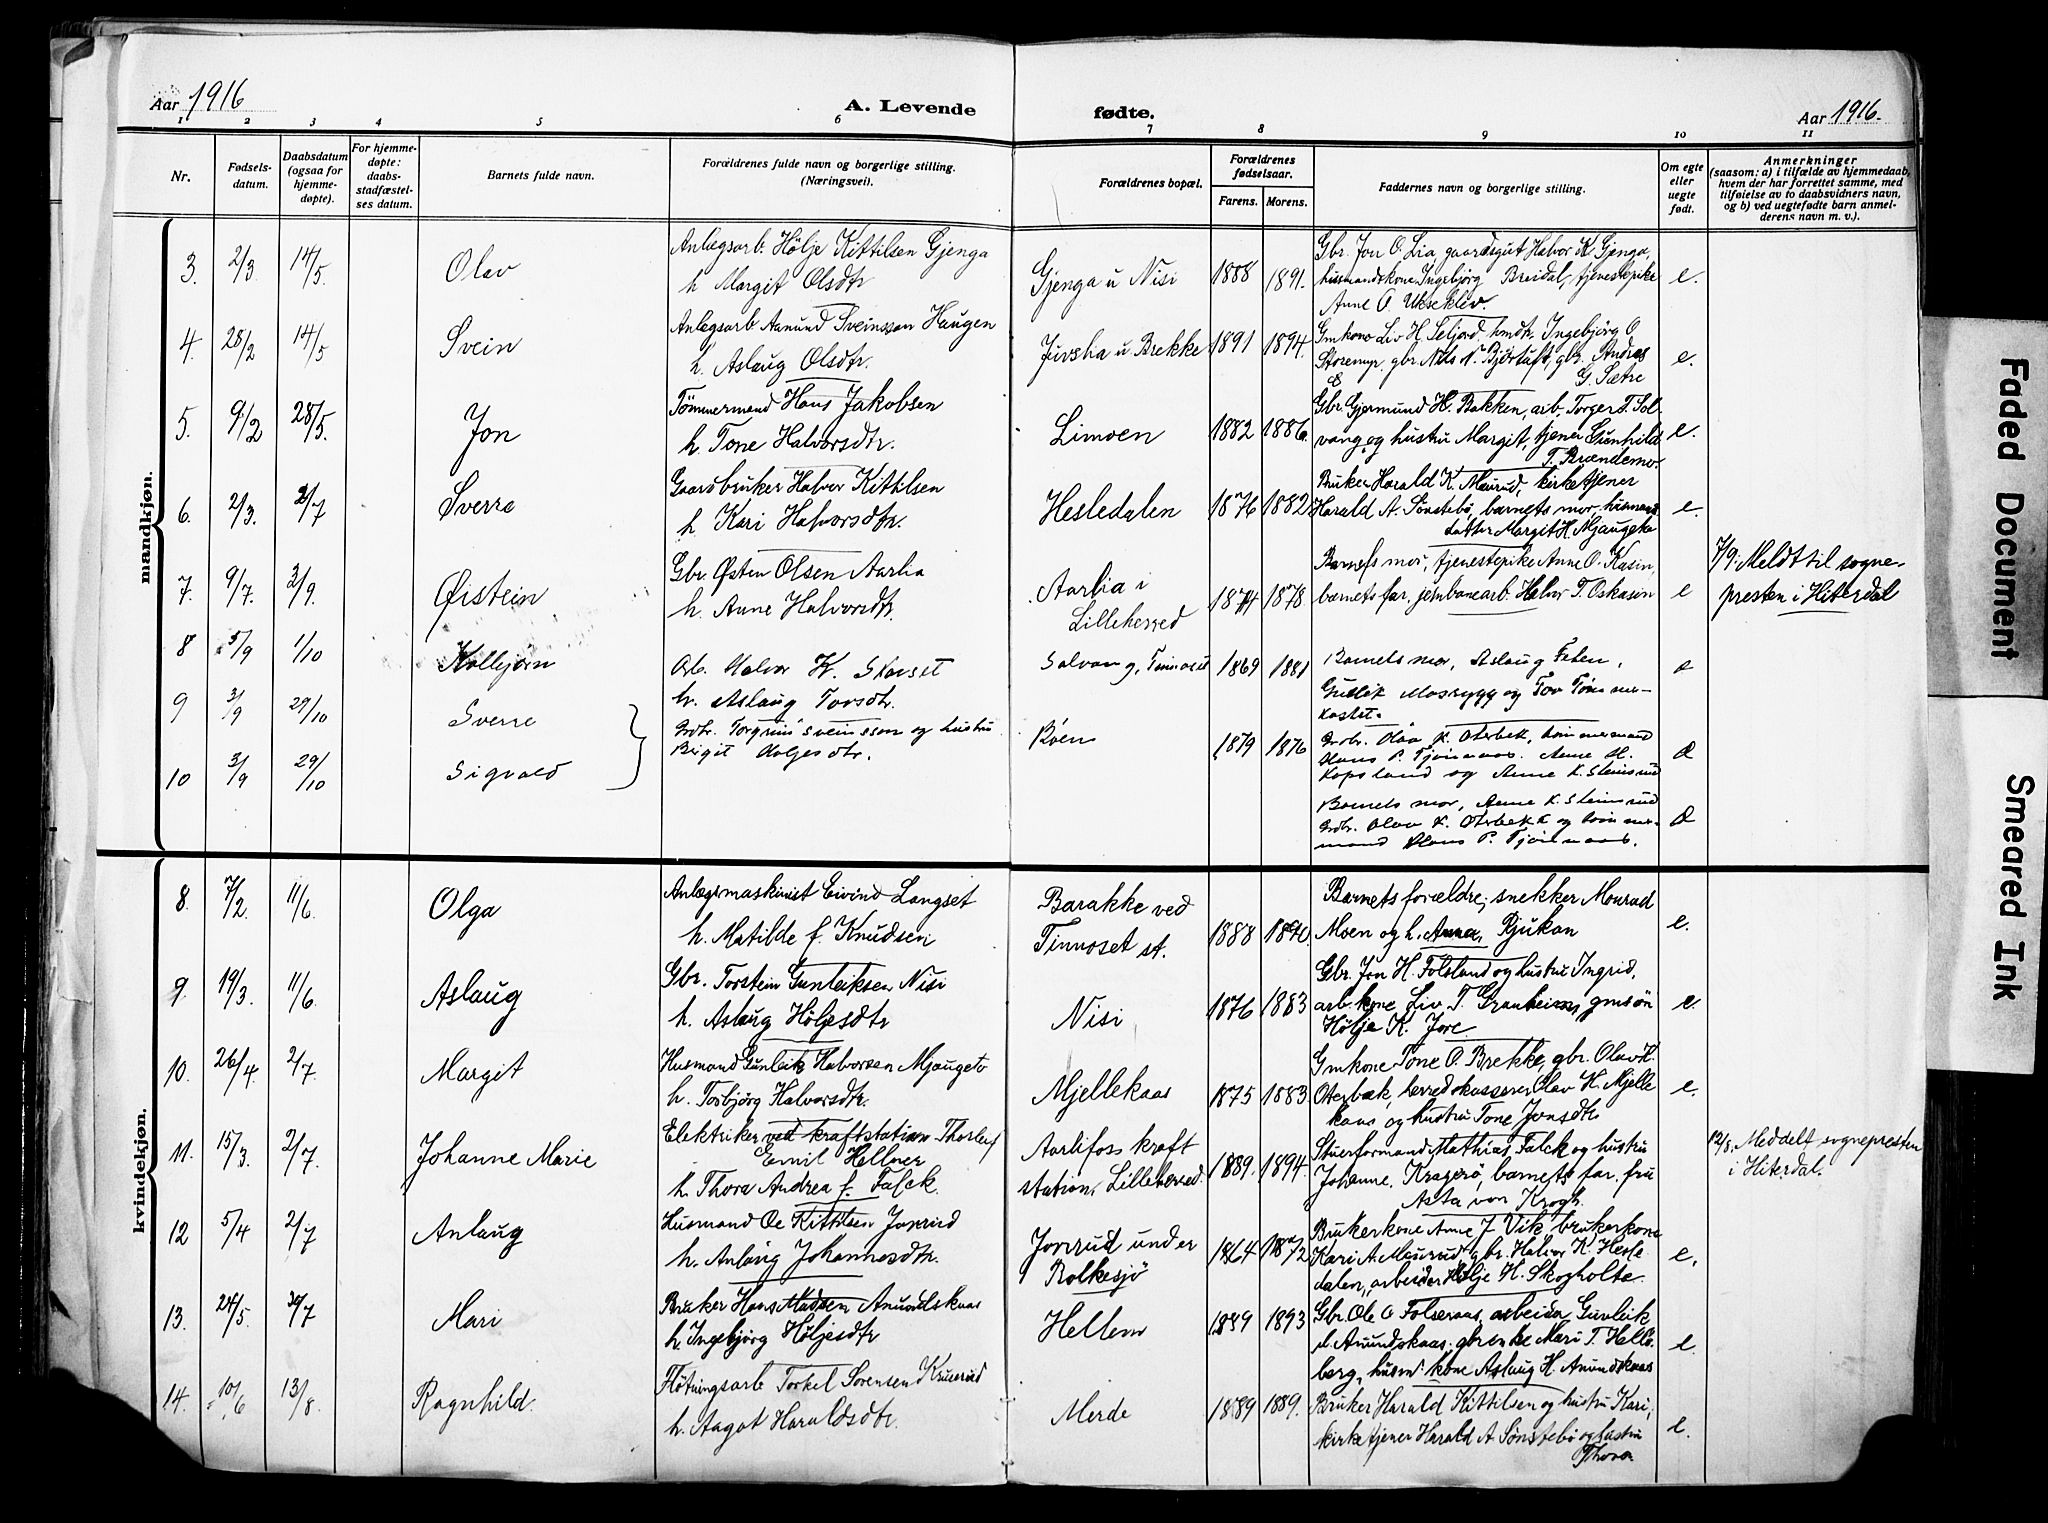 Aar 1916
A. Levende
fødte.
Aar 1916.
1 2 3 4 5 6 7 8 9 10 11
Nr.
Fødsels-
datum.
Daabsdatum
(ogsaa for
hjemme-
døpte).
For hjemme-
døpte:
daabs-
stadfæstel-
ses datum.
Barnets fulde navn.
Forældrenes fulde navn og borgerlige stilling.
(Næringsvei).
Forældrenes bopæl.
Forældrenes
fødselsaar.
Farens. Morens.
Faddernes navn og borgerlige stilling.
Om egte
eller
uegte
født.
Anmerkninger
(saasom: a) i tilfælde av hjemmedaab,
hvem der har forrettet samme, med
tilføielse av to daabsvidners navn,
og b) ved uegtefødte barn anmel-
derens navn m. v.).
mandkjøn.
3. 2/3. 14/5. Olav
Anlægsarb. Hølje Kittilsen Gjenga
h. Margit Olsdtr
Gjenga u Nisi 1888 1891.
Gbr. Jon O. Lia, gaardsgut Halvor K. Gjenga,
husmandskone Ingebjørg Breidal, tjenestepike
Anne O. Ukseklev.
e.
4. 28/2 14/5 Svein
Anlægsarb Aanund Sveinsson Haugen
h. Aslaug Olsdtr.
Juvslia u. Brekke 1891 1894.
Gmkone Liv H. Seljord, hmdtr. Ingebjørg O.
gbr. Andres
G. Sætre
e.
5. 9/2 28/5. Jon
Tømmermand Hans Jakobsen
h. Tone Halvorsdtr.
Limoen 1882 1886.
Gbr. Gjermund H. Bakken, arb. Torger T. Sol-
vang og hustru Margit, tjener Gunhild
T. Brændemo.
e.
6. 2/3. 2/7 Sverre
Gaardbruker Halvor Kittilsen
h. Kari Halvorsdtr.
Hesledalen 1876 1882
Bruker Harald K. Meurud, kirketjener
Harald A. Sønstebø, barnets mor, husmands
datter Margit H. Mjaugeto
e.
7. 9/7. 3/9. Øistein
Gbr. Østen Olsen Aarlia
h. Anne Halvorsdtr.
Aarlia i
Lilleherred
1874 1878
Barnets mor, tjenestepike Anne O. Kasin,
barnets far, jernbanearb. Halvor T. Oskasin
e
7/9. Meldt til sogne-
presten i Hiterdal
8 5/9 1/10 Kolbjørn
Arb. Halvor K. Storset
h. Aslaug Torsdtr.
Solvang, Tinnoset 1869 1881
Barnets mor, Aslaug Felen,
Gullik Mosrygg og Tov Tømmer-
kastet.
e
9 3/9 29/10 Sverre
Grdbr. Torgrim Sveinsson og hustru
Birgit Holjesdtr.
Bøen 1879 1876
Grdbr. Olav K. Oterbek, tømmermand
Hans P. Tjønnaas. Anne H.
Kopsland og Anne K. Steinsrud
e
10 3/9 29/10 Sigvald
Barnets mor, Anne K. Steinsrud
Grdbr. Olav K. Oterbekk og tømmer-
mand Hans P. Tjønnaas.
e
kvindekjøn.
8. 7/2. 11/6. Olga
Anlægsmaskinist Eivind Langset
h. Matilde f. Knudsen
Barakke ved
Tinnoset st.
1888 1890
Barnets forældre, snekker Monrad
Moen og h. Anna, Rjukan
e.
9. 19/3. 11/6. Aslaug
Gbr. Torstein Gunleiksen Nisi
h. Aslaug Høljesdtr
Nisi 1876 1883
Gbr. Jon H. Folsland og hustru Ingrid,
arb.kone Liv T. Granheim, gmsøn
Hølje K. Jore
e.
10. 26/4. 2/7. Margit
Husmand Gunleik Halvorsen Mjaugeto
h. Torbjørg Halvorsdtr.
Mjellekaas 1875 1883
Gmkone Tone O. Brekke, gbr. Olav K.
Oterbæk, herredskasserer Olav H. Mjelle
kaas og hustru Tone Jonsdtr
e.
11. 15/3. 2/7. Johanne Marie
Elektriker ved kraftstation Thorleif
Emil Hellner
h. Thora Andrea f. Falck.
Aarlifoss kraft
station, Lilleherred.
1889. 1894.
Stuerformand Mathias Falck og hustru
Johanne, Kragerø, barnets far, fru
Asta von Krogh.
12/8. Meddelt sognepresten
i Hiterdal.
12 5/4 2/7 Anlaug
Husmand Ole Kittilsen Jonrud
h. Anlaug Johannesdtr.
Jonrud under
Bolkesjø
1864 1872
Brukerkone Anne J. Vik, brukerkone
Kari A. Meurud, gbr. Halvor K. Hesle
dalen, arbeider Hølje H. Skogholte.
e.
13. 24/5. 30/7 Mari
Bruker Hans Madsen Anundskaas
h. Ingebjørg Høljesdtr
Hellem 1889 1893
Gbr. Ole O Folseraas, arbeider Gunleik
Anundskaas, Mari T. Helle-
berg, husm. kone Aslaug H. Anundskaas
e.
14. 10/6 13/8. Ragnhild.
Fløtningsarb Torkel Sørensen Kruserud
h. Aagot Haraldsdtr.
Merde 1889 1889.
Bruker Harald Kittilsen og hustru Kari,
kirketjener Harald A. Sønstebø og hustru
Thora
e.
Faded Document
Smeared Ink